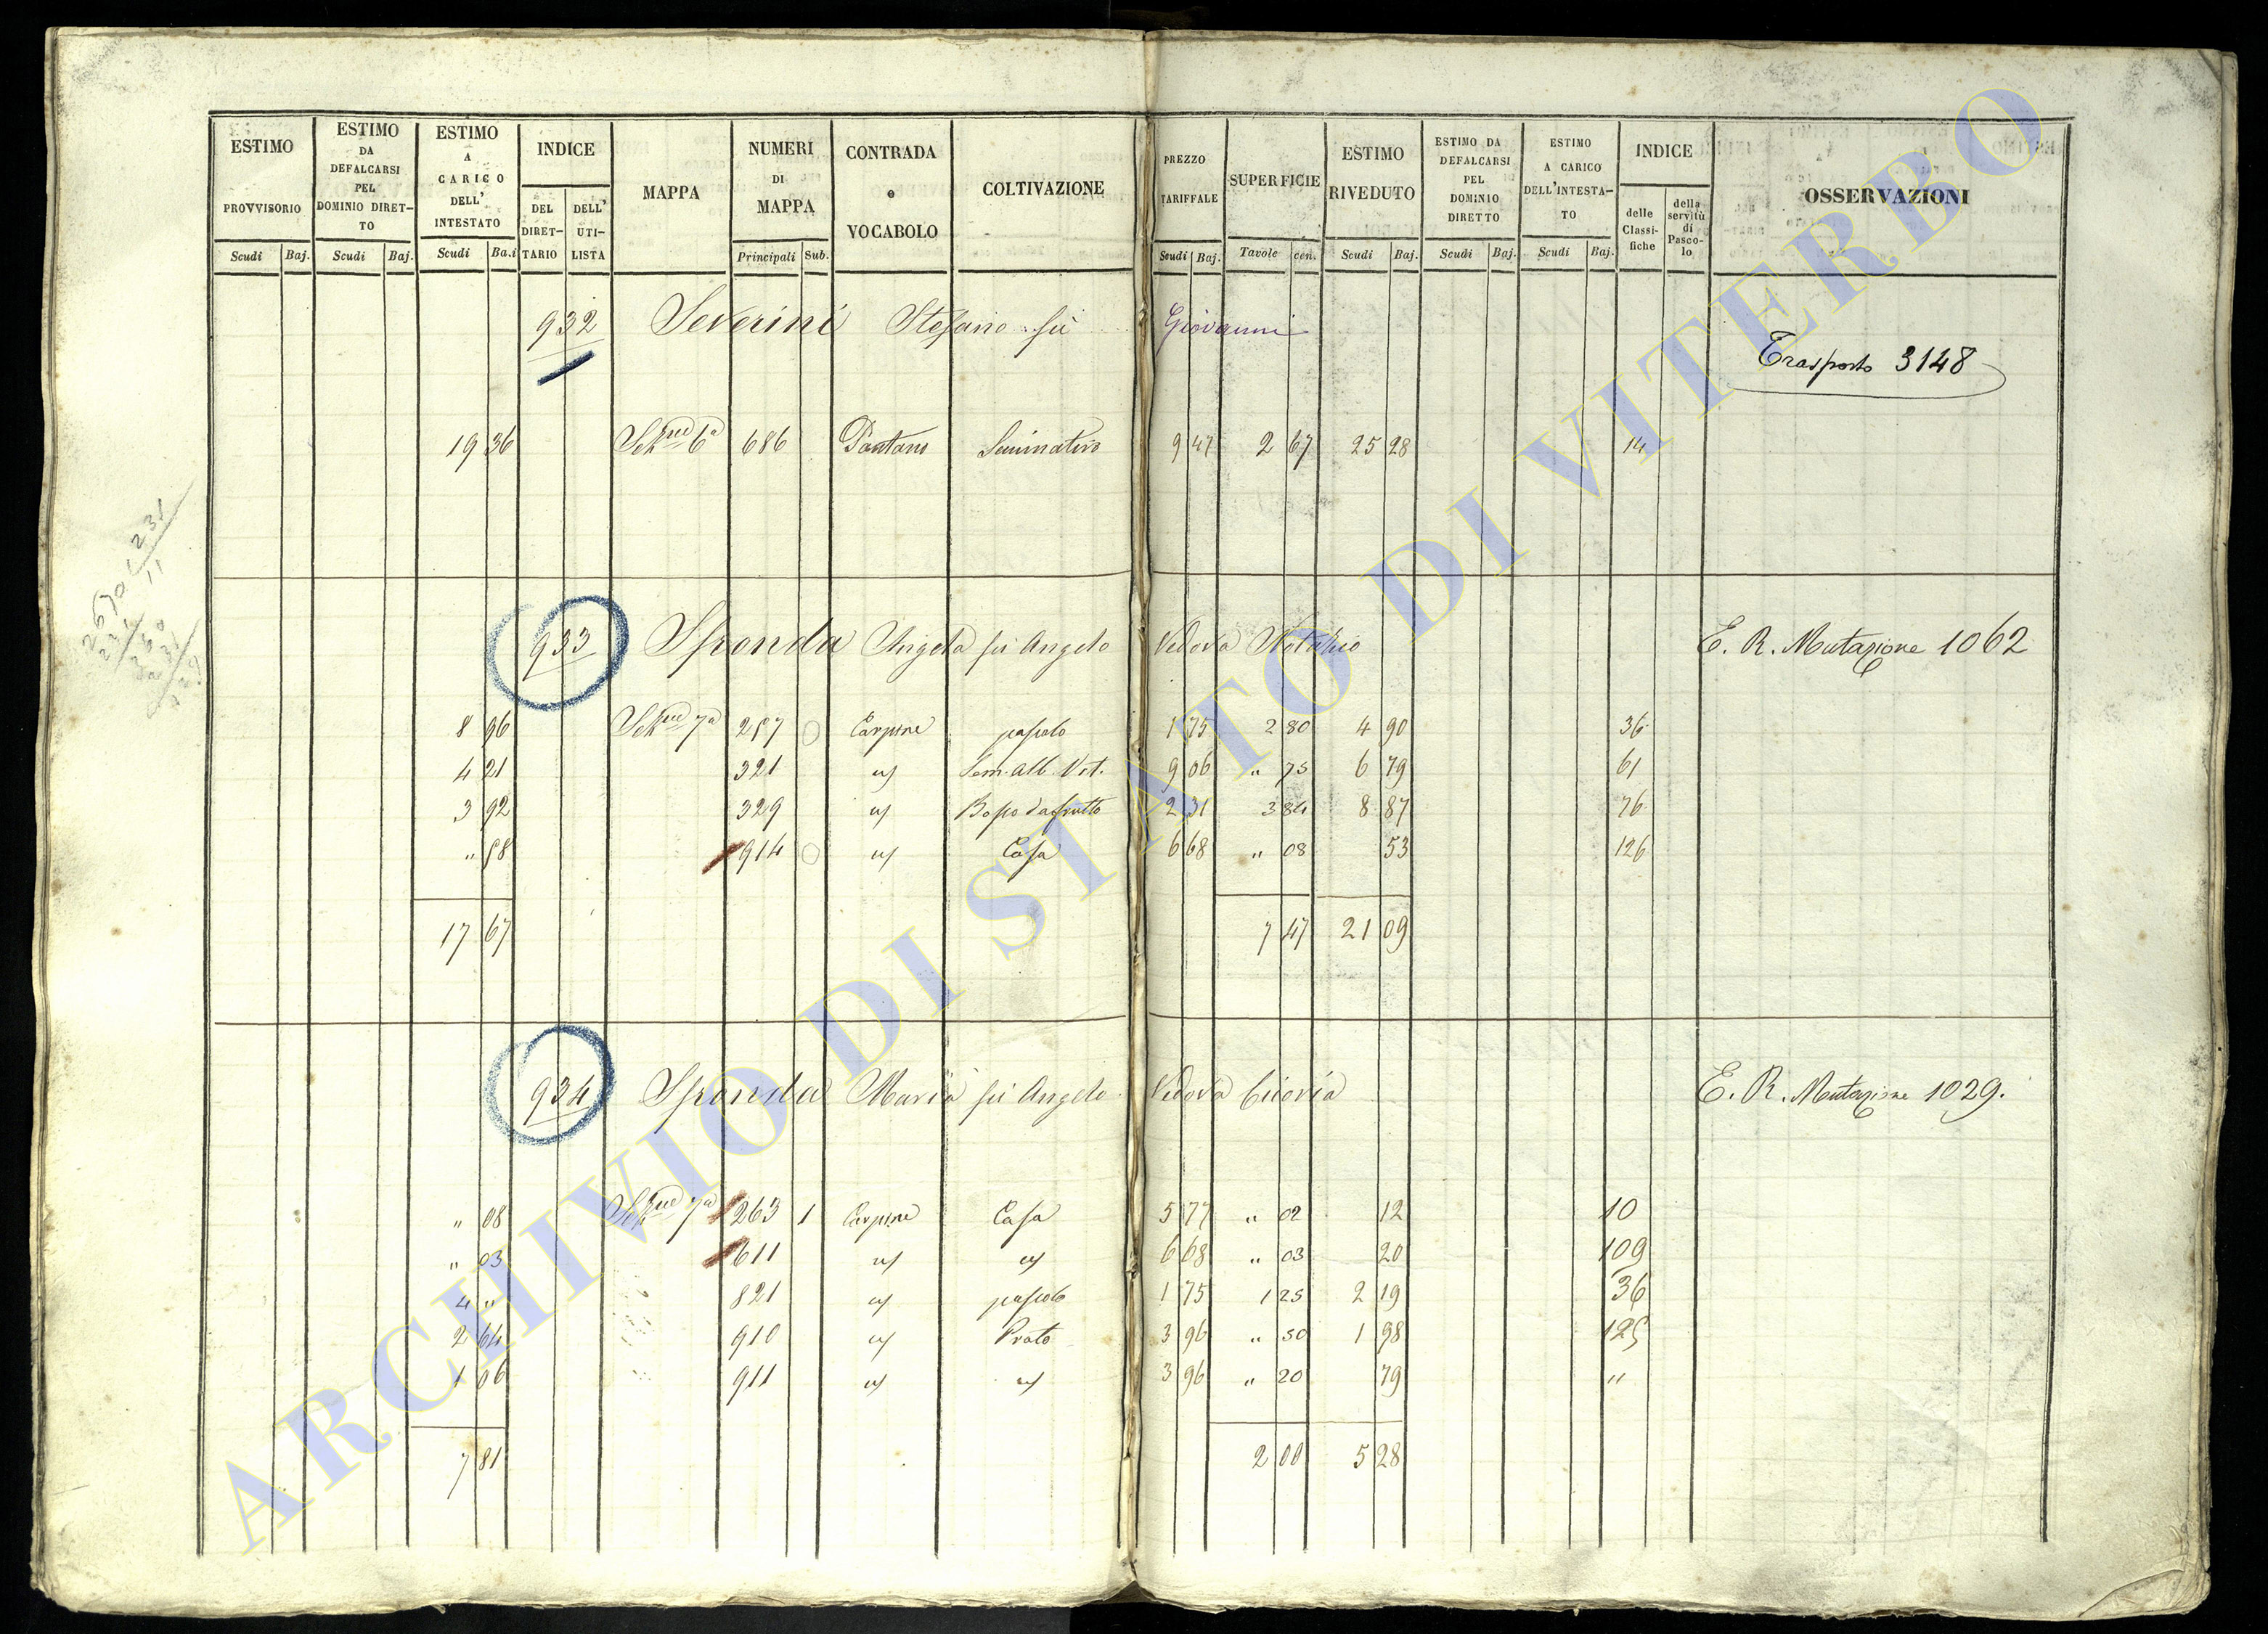 ESTIMO PROVVISORIO
ESTIMO DA DEFALCARSI PEL DOMINIO DIRET-TO
ESTIMO A CARICO DELL' INTESTATO
INDICE
DEL DIRET-TARIO
DELL' UTI-LISTA
MAPPA
NUMERI DI MAPPA
CONTRADA e VOCABOLO
COLTIVAZIONE
PREZZO TARIFFALE
SUPERFICIE
ESTIMO RIVEDUTO
ESTIMO DA DEFALCARSI PEL DOMINIO DIRETTO
ESTIMO A CARICO DELL'INTESTA-TO
INDICE
delle Classi-fiche
della servitù di Pasco-lo
OSSERVAZIONI
Scudi Baj. Scudi Baj. Scudi Ba.i Principali Sub. Scudi Baj. Tavole cen. Scudi Baj. Scudi Baj. Scudi Baj.
932 Severini Stefano fù Giovanni
Trasporto 3148
19 36 Sez.ne 6a 686 Pantano Seminativo 9 47 2 67 25 28 14
933 Sponda Angela fù Angelo Vedova E. R. Mutazione 1062
8 96 Sez.ne 7a 257 Carpine pascolo 1 75 2 80 4 90 36
4 21 321 " Sem. alb. Vit. 9 06 " 75 6 79 61
3 92 329 " Bosco da frutto 2 31 3 84 8 87 76
" 58 914 " Casa 6 68 " 08 53 126
17 67 7 47 21 09
934 Sponda Maria fù Angelo Vedova E. R. Mutazione 1029.
" 08 Sez.ne 7a 263 1 Carpine Casa 5 77 " 02 12 10
" 03 611 " " 6 68 " 03 20 109
4 " 821 " pascolo 1 75 1 25 2 19 36
2 64 910 " Prato 3 96 " 50 1 98 125
1 06 911 " " 3 96 " 20 79 "
7 81 2 00 5 28
ARCHIVIO DI STATO DI VITERBO